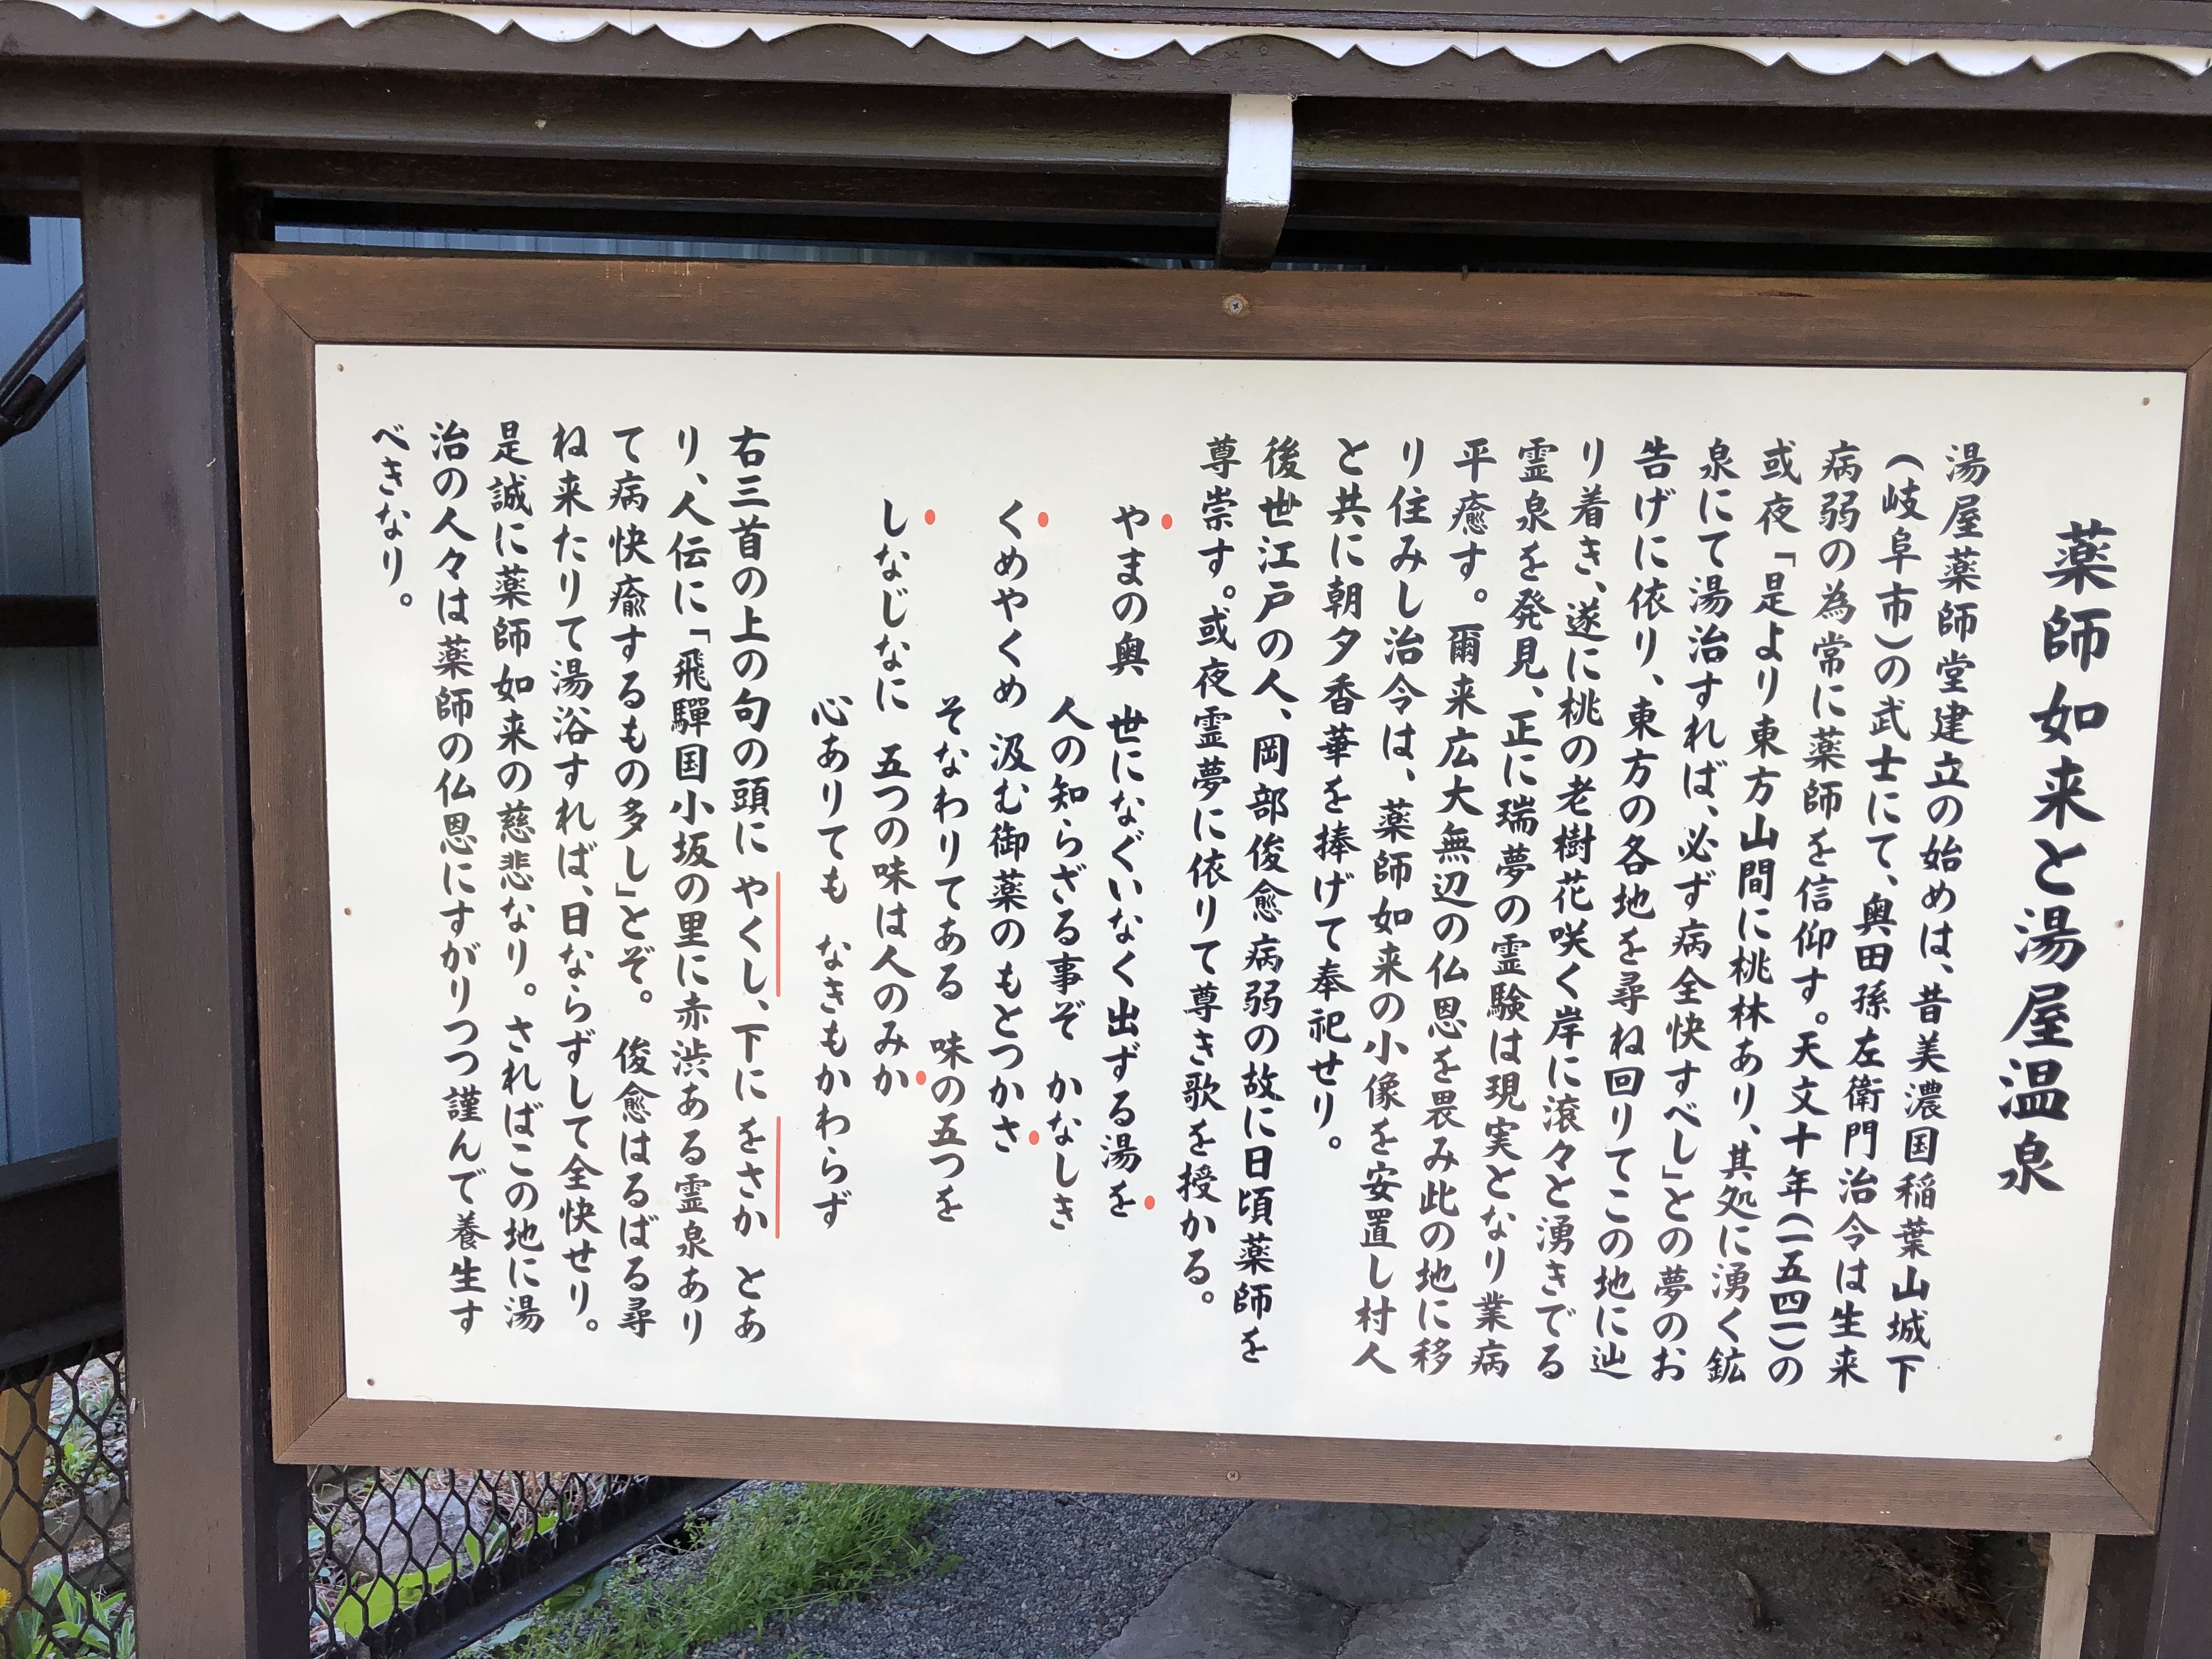 薬師如来と湯屋温泉
湯屋薬師堂建立の始めは、昔美濃国稲葉山城下
(岐阜市)の武士にて、奥田孫左衛門治令は生来
病弱の為常に薬師を信仰す。天文十年(一五四一)の
或夜「是より東方山間に桃林あり、其処に湧く鉱
泉にて湯治すれば、必ず病全快すべし」との夢のお
告げに依り、東方の各地を尋ね回りてこの地に辿
り着き、遂に桃の老樹花咲く岸に滾々と湧きでる
霊泉を発見、正に瑞夢の霊験は現実となり業病
平癒す。爾来広大無辺の仏恩を畏み此の地に移
り住みし治令は、薬師如来の小像を安置し村人
と共に朝夕香華を捧げて奉祀せり。
後世江戸の人、岡部俊愈病弱の故に日頃薬師を
尊崇す。或夜霊夢に依りて尊き歌を授かる。
やまの奥 世になぐいなく出ずる湯を
人の知らざる事ぞ かなしき
くめやくめ 汲む御薬の もとつかさ
そなわりてある 味の五つを
しなじなに 五つの味は人のみか
心ありても なきもかわらず
右三首の上の句の頭に やくし、下に をさか とあ
り、人伝に「飛驒国小坂の里に赤渋ある霊泉あり
て病快癒するもの多し」とぞ。俊愈はるばる尋
ね来たりて湯浴すれば、日ならずして全快せり。
是誠に薬師如来の慈悲なり。さればこの地に湯
治の人々は薬師の仏恩にすがりつつ謹んで養生す
べきなり。